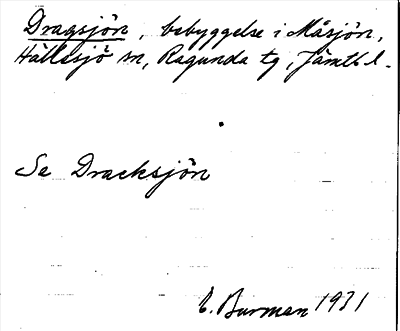 Dragsjön, bebyggelse i Måsjön,
Hällesjö sn, Ragunda tg, Jämtl l.
Se Dracksjön
E. Burman 1931